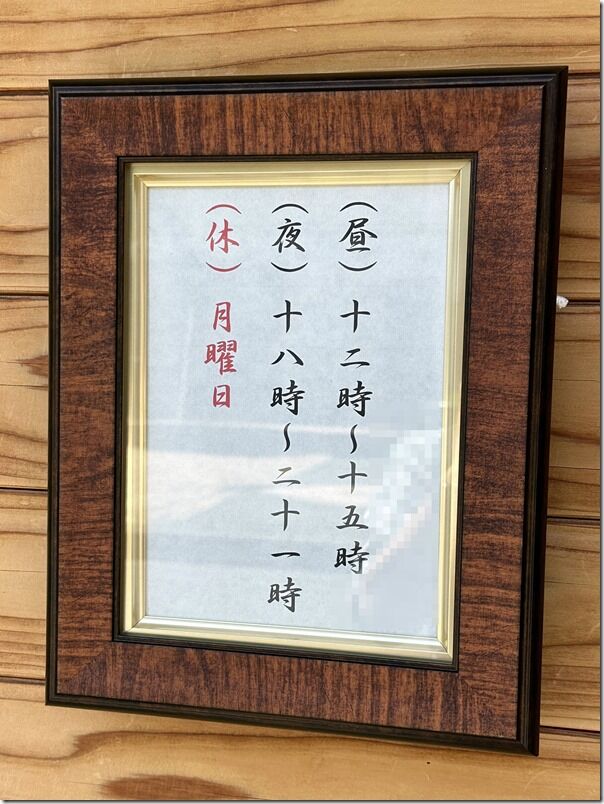 (昼) 十二時~十五時
(夜) 十八時~二十一時
(休) 月曜日